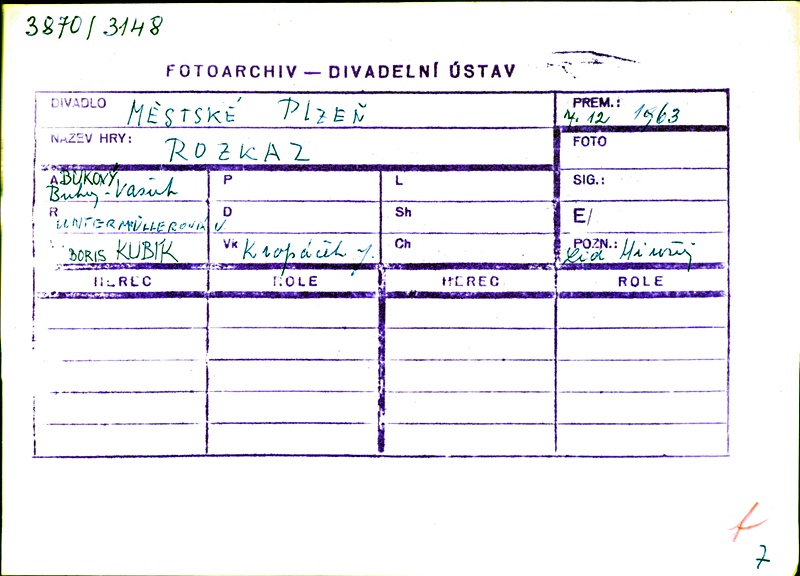 3870/3148
FOTOARCHIV — DIVADELNÍ ÚSTAV
DIVADLO MĚSTSKÉ PLZEŇ
PREM.: 7. 12 1963
NÁZEV HRY: ROZKAZ
FOTO
A BUKOVÝ
Buky-Vasuk
P
L
SIG.:
R UNTERMÜLLEROVÁ V.
D
Sh
E/
BORIS KUBÍK
Vk Kropáček J.
Ch
POZN.: Lid
HEREC ROLE HEREC ROLE
7